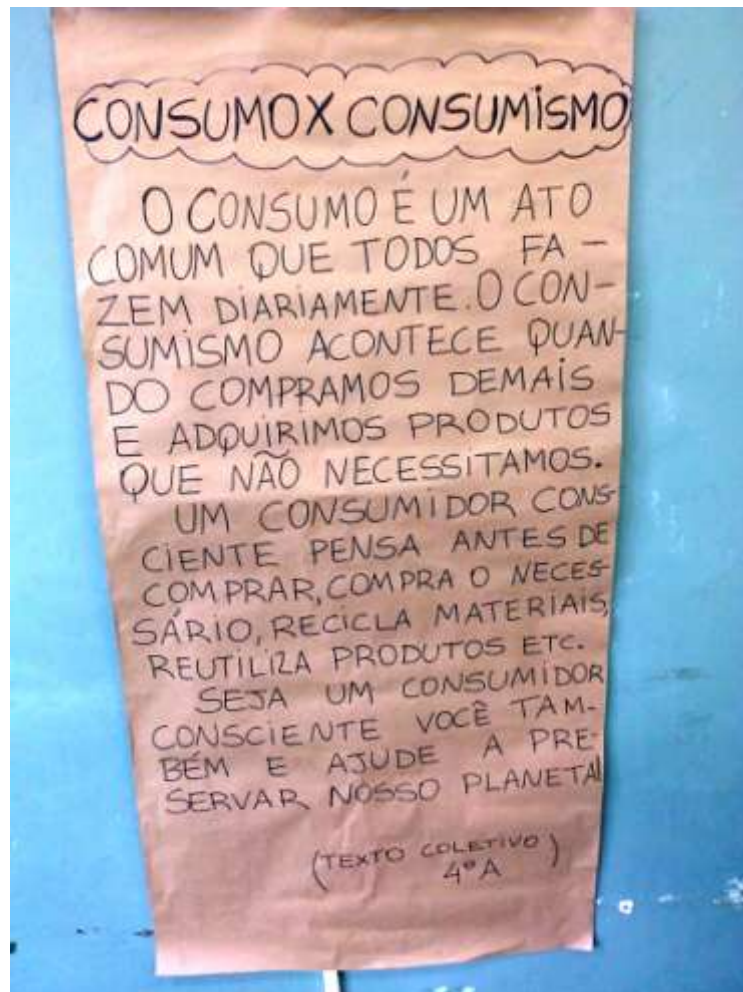 CONSUMO X CONSUMISMO
O CONSUMO É UM ATO
COMUM QUE TODOS FA-
ZEM DIARIAMENTE. O CON-
SUMISMO ACONTECE QUAN-
DO COMPRAMOS DEMAIS
E ADQUIRIMOS PRODUTOS
QUE NÃO NECESSITAMOS.
UM CONSUMIDOR CONS-
CIENTE PENSA ANTES DE
COMPRAR, COMPRA O NECES-
SÁRIO, RECICLA MATERIAIS,
REUTILIZA PRODUTOS ETC.
SEJA UM CONSUMIDOR
CONSCIENTE VOCÊ TAM-
BÉM E AJUDE A PRE-
SERVAR NOSSO PLANETA!
(TEXTO COLETIVO)
4º A